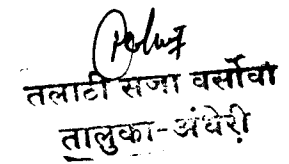 तलाटी सजा वर्सोवा
तालुका-अंधेरी